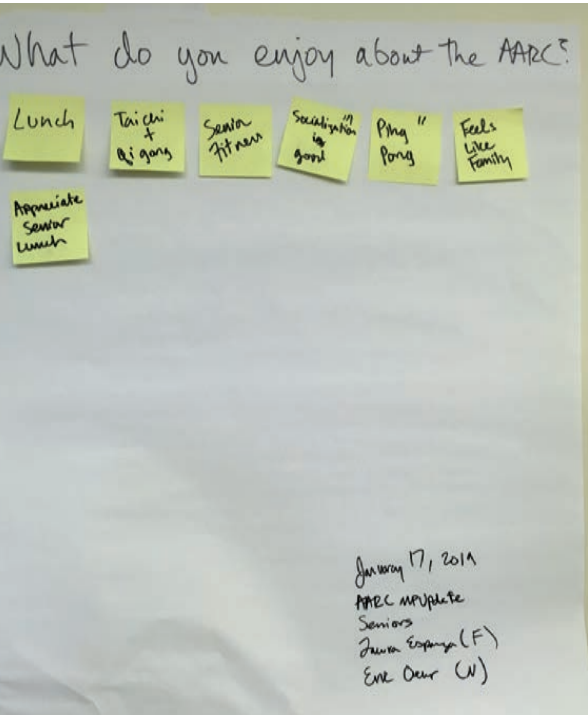 What do you enjoy about the AARC?
Lunch
Tai chi
+
Qi gong
Senior
Fitness
Socialization "1
is
good
Ping "
Pong
Feels
Like
Family
Appreciate
Senior
Lunch
January 17, 2019
AARC MPUpdate
Seniors
(F)
(N)